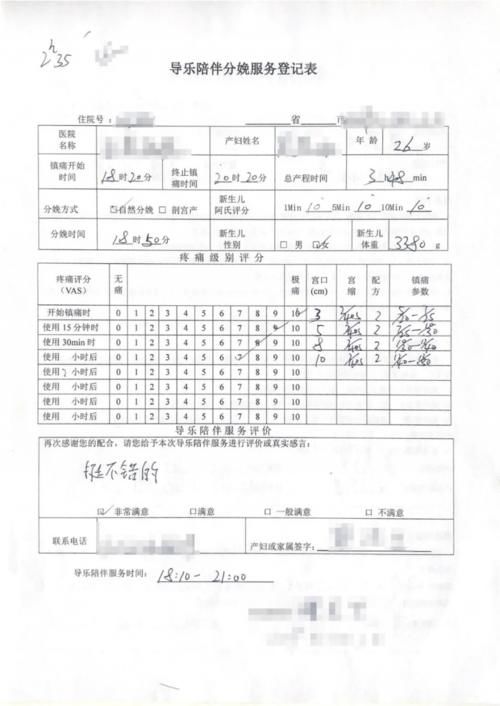 2h35
导乐陪伴分娩服务登记表
住院号： 省 市
医院名称 产妇姓名 年 龄 26 岁
镇痛开始时间 18时20分 终止镇痛时间 20时20分 总产程时间 3h48min
分娩方式 ☑自然分娩 □剖宫产 新生儿阿氏评分 1Min 10 5Min 10 10Min 10
分娩时间 18时50分 新生儿性别 □男 ☑女 新生儿体重 3380 g
疼 痛 级 别 评 分
疼痛评分(VAS) 无痛 极痛 宫口(cm) 宫缩 配方 镇痛参数
开始镇痛时 0 1 2 3 4 5 6 7 8 9 10 3 2
使用 15分钟时 0 1 2 3 4 5 6 7 8 9 10 5 2
使用 30min时 0 1 2 3 4 5 6 7 8 9 10 8 2
使用 小时后 0 1 2 3 4 5 6 7 8 9 10 10 2
使用 小时后 0 1 2 3 4 5 6 7 8 9 10
使用 小时后 0 1 2 3 4 5 6 7 8 9 10
使用 小时后 0 1 2 3 4 5 6 7 8 9 10
导乐陪伴服务评价
再次感谢您的配合，请您给予本次导乐陪伴服务进行评价或真实感言：
挺不错的
☑非常满意 □满意 □一般满意 □不满意
联系电话 产妇或家属签字：
导乐陪伴服务时间： 18:10-21:00